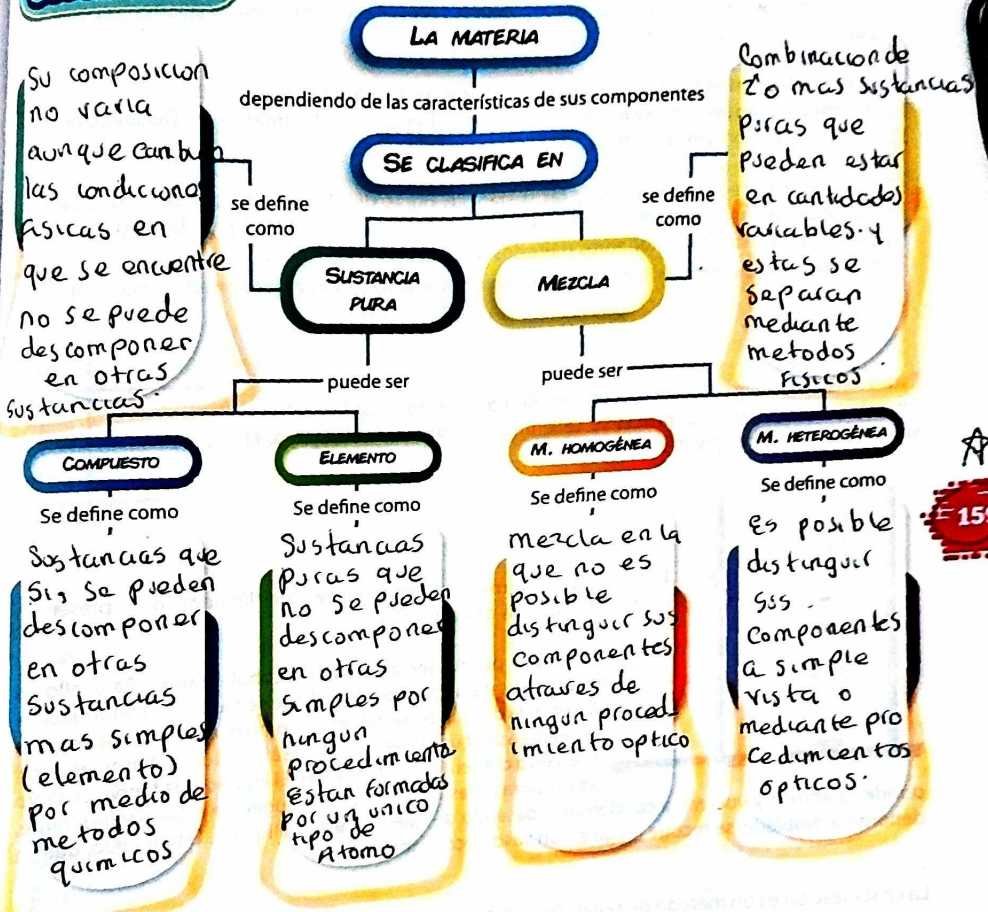 LA MATERIA
dependiendo de las características de sus componentes
SE CLASIFICA EN
Su composicion
no varia
aunque cambien
las condiciones
fisicas en
que se encuentre
no se puede
descomponer
en otras
sustancias.
se define
como
SUSTANCIA
PURA
se define
como
MEZCLA
Combinacion de
2 o mas sustancias
puras que
pueden estar
en cantidades
variables. y
estas se
separan
mediante
metodos
fisicos.
puede ser
puede ser
COMPUESTO
Se define como
Sustancias que
si, se pueden
descomponer
en otras
sustancias
mas simples
(elemento)
por medio de
metodos
quimicos
ELEMENTO
Se define como
Sustancias
puras que
no se pueden
descomponer
en otras
simples por
ningun
procedimiento
Estan formadas
por un unico
tipo de
Atomo
M. HOMOGÉNEA
Se define como
mezcla en la
que no es
posible
distinguir sus
componentes
atraves de
ningun proced_
imiento optico
M. HETEROGÉNEA
Se define como
Es posible
distinguir
sus
componentes
a simple
vista o
mediante pro
cedimientos
opticos.